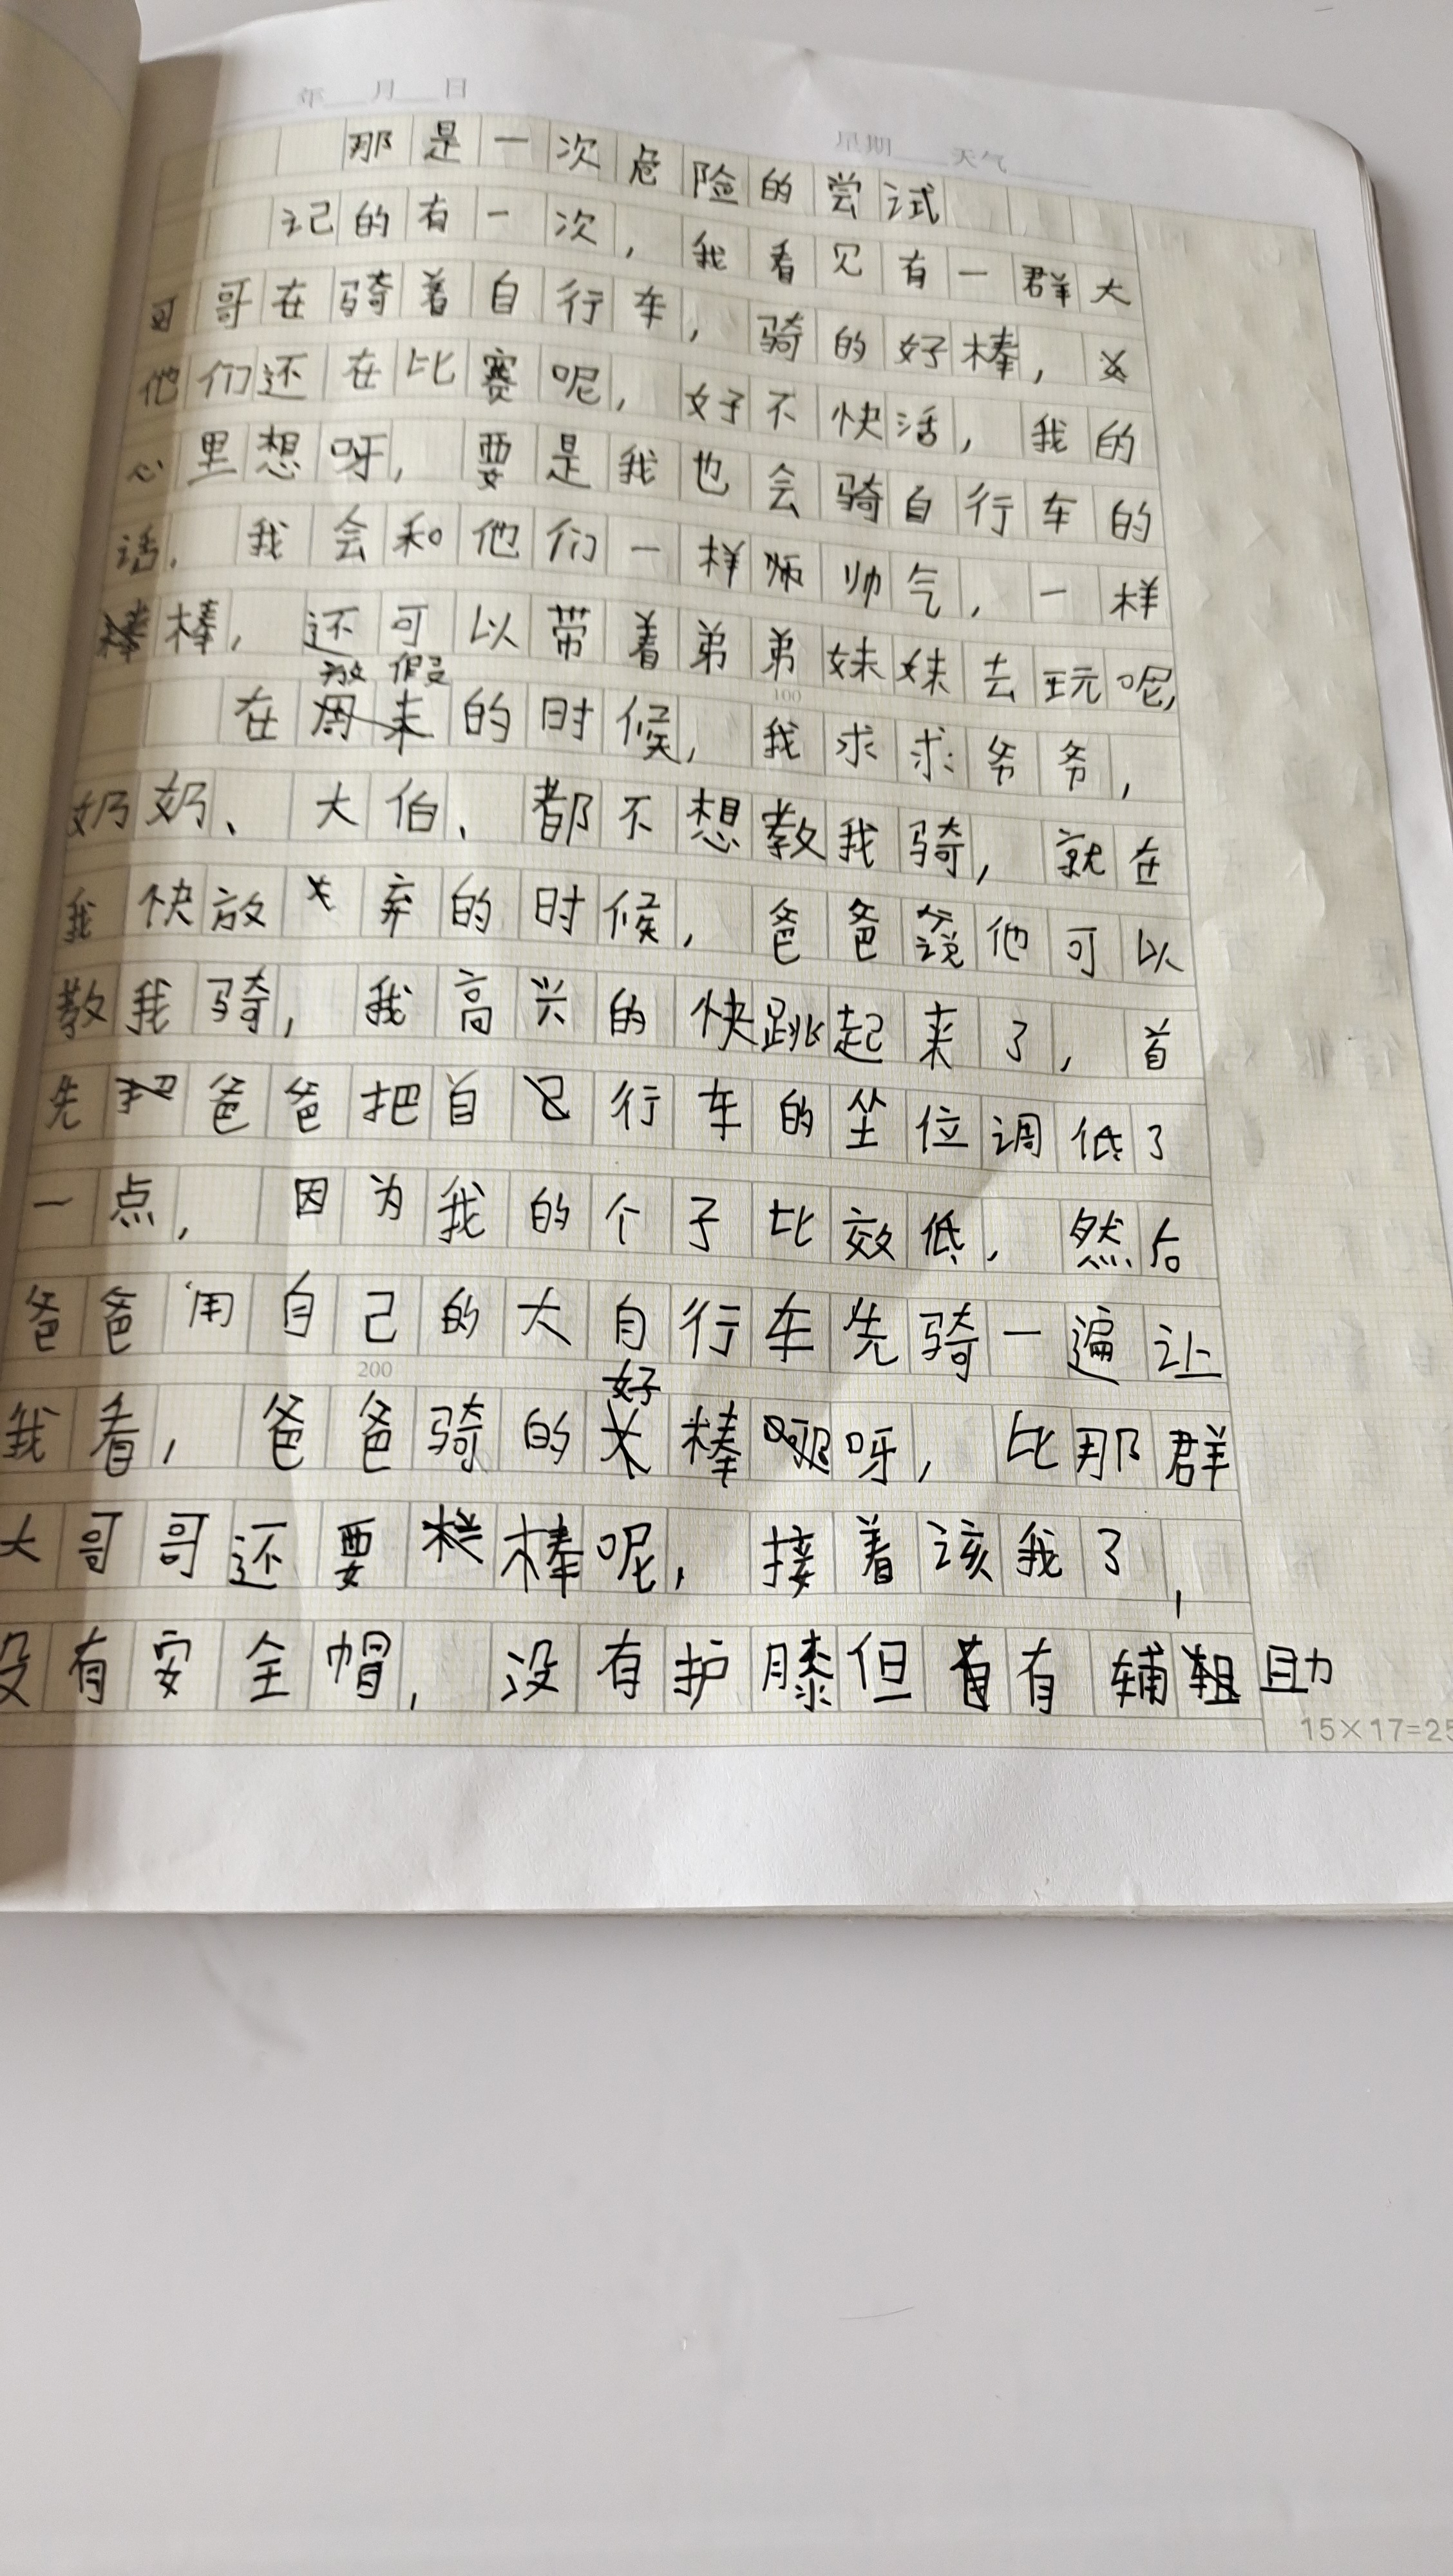 年 月 日
星期 天气
那是一次危险的尝试
记的有一次，我看见有一群大
哥哥在骑着自行车，骑的好棒，
他们还在比赛呢，好不快活，我的
心里想呀，要是我也会骑自行车的
话，我会和他们一样帅气，一样
棒，还可以带着弟弟妹妹去玩呢，
100
放假
在周末的时候，我求求爷爷，
奶奶、大伯、都不想教我骑，就在
我快放弃的时候，爸爸说他可以
教我骑，我高兴的快跳起来了，首
先爸爸把自行车的坐位调低了
一点，因为我的个子比效低，然后
爸爸用自己的大自行车先骑一遍让
200
好
我看，爸爸骑的棒呀，比那群
大哥哥还要棒呢，接着该我了，
没有安全帽，没有护膝但有辅助
15×17=25